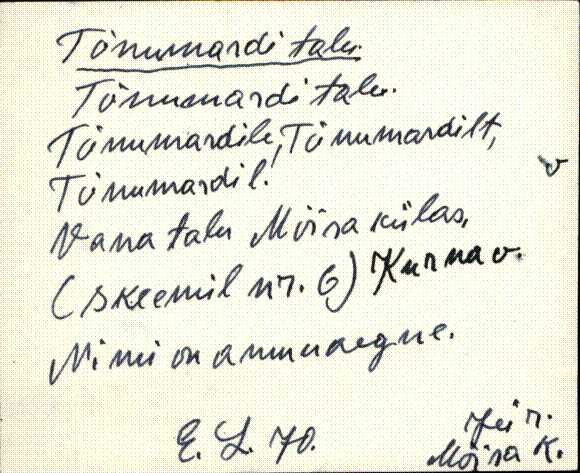 Tõnumardi talu.
Tõnumardi talu.
Tõnumardile, Tõnumardilt,
Tõnumardil.
v
Vana talu Mõisa külas,
(skeemil nr. 6) Kurna v.
Nimi on ammuaegne.
E. L. 70.
Jür.
Mõisa K.